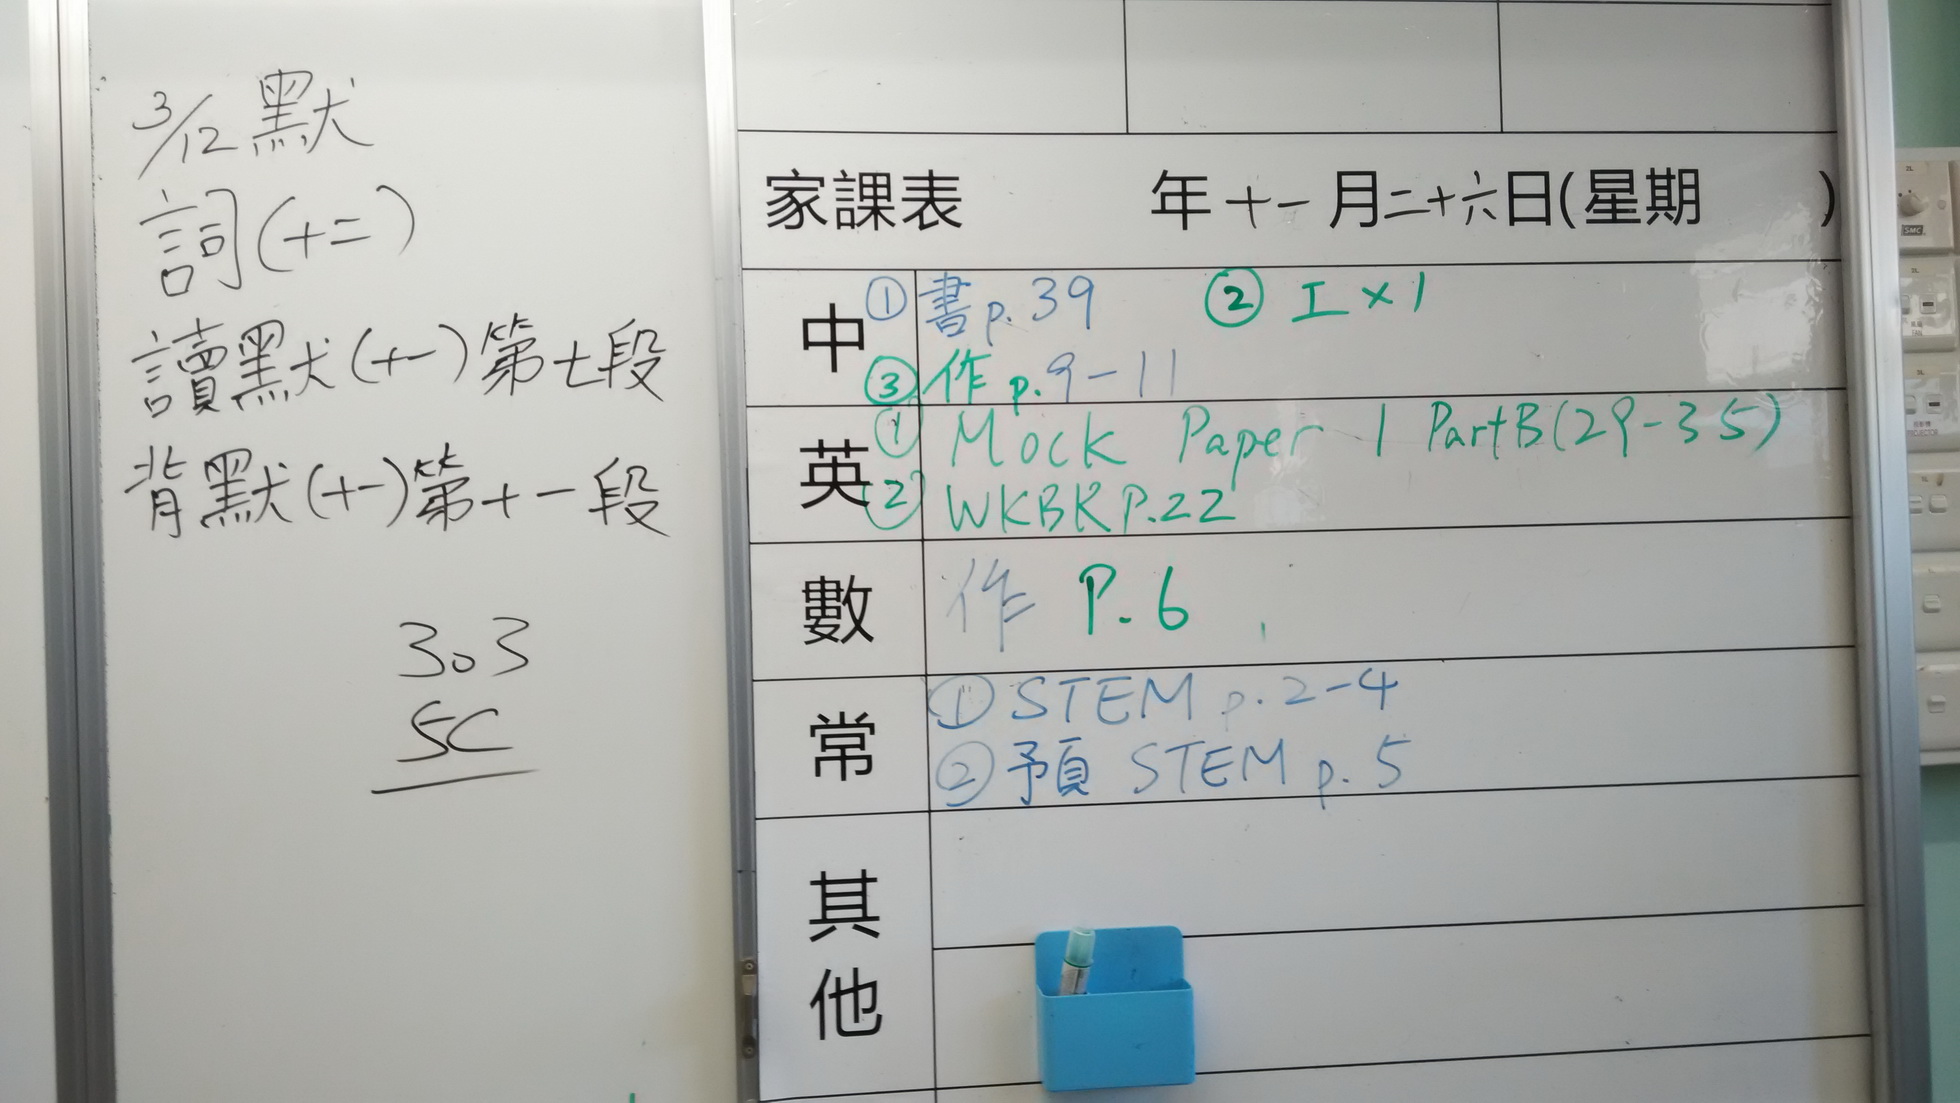 3/12 默
詞(十二)
讀默(十一)第七段
背默(十一)第十一段
303
5C
家課表 年十一月二十六日(星期 )
中 ① 書 p.39 ② 工 × 1
③ 作 p.9-11
英 ① Mock Paper 1 Part B (29-35)
② WKBK P.22
數 作 P.6
常 ① STEM p.2-4
② 預 STEM p.5
其他